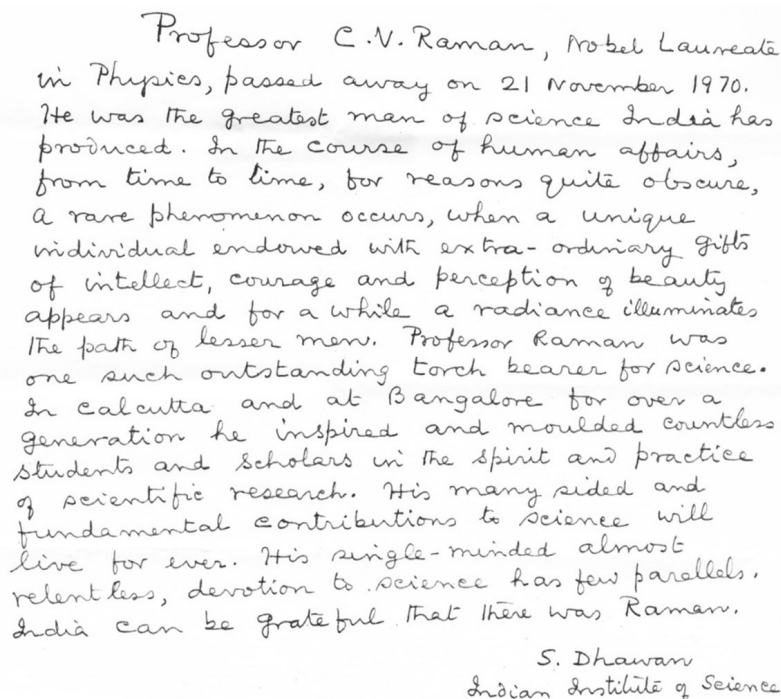 Professor C.V. Raman, Nobel Laureate
in Physics, passed away on 21 November 1970.
He was the greatest man of science India has
produced. In the course of human affairs,
from time to time, for reasons quite obscure,
a rare phenomenon occurs, when a unique
individual endowed with extra-ordinary gifts
of intellect, courage and perception of beauty
appears and for a while a radiance illuminates
the path of lesser men. Professor Raman was
one such outstanding torch bearer for science.
In Calcutta and at Bangalore for over a
generation he inspired and moulded countless
students and scholars in the spirit and practice
of scientific research. His many sided and
fundamental contributions to science will
live for ever. His single-minded almost
relentless, devotion to science has few parallels.
India can be grateful that there was Raman.
S. Dhawan
Indian Institute of Science